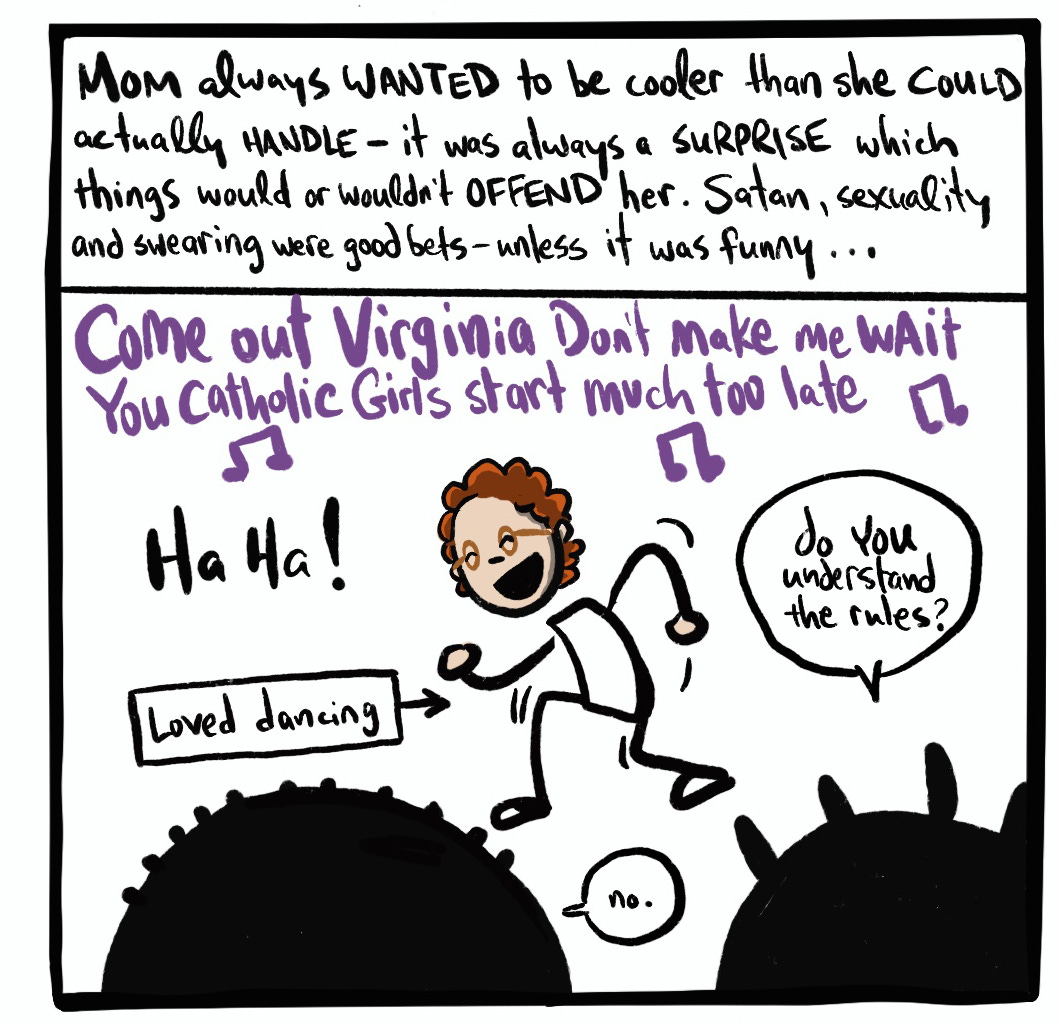 Mom always WANTED to be cooler than she COULD
actually HANDLE – it was always a SURPRISE which
things would or wouldn't OFFEND her. Satan, sexuality
and swearing were good bets – unless it was funny...
Come out Virginia Don't make me WAit
You Catholic Girls start much too late
Ha Ha!
do You
understand
the rules?
Loved dancing
no.